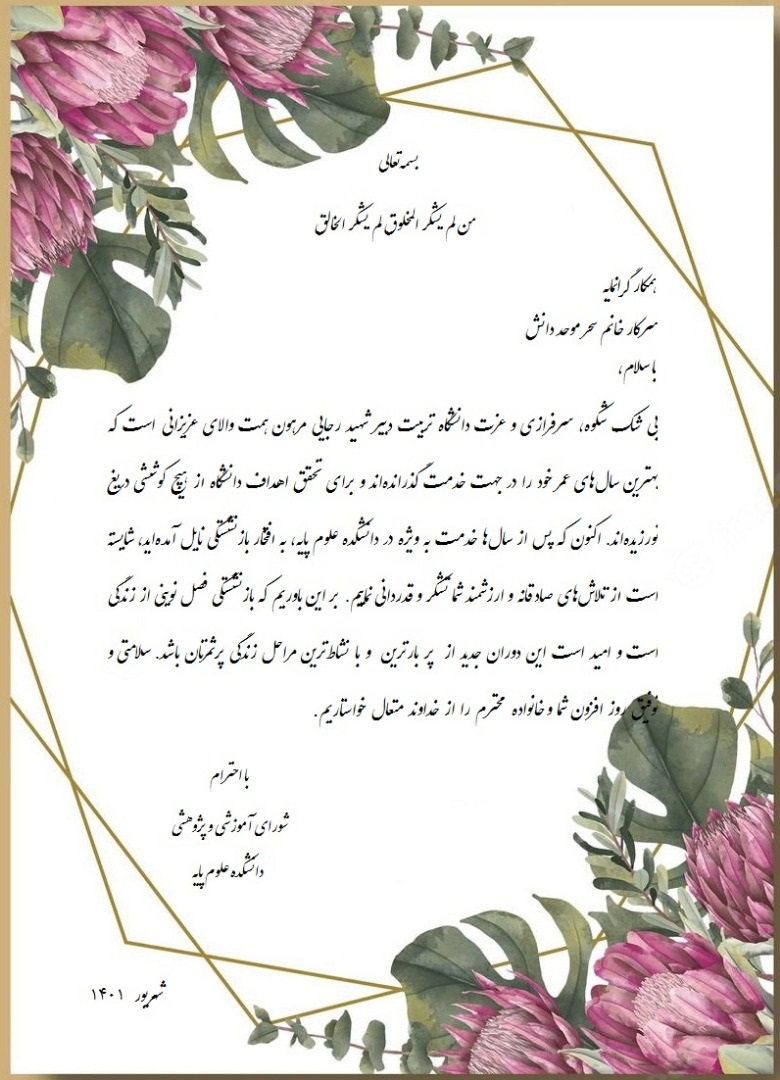 بسمه تعالی
من لم یشکر المخلوق لم یشکر الخالق
همکار گرانمایه
سرکار خانم سحر موحد دانش
با سلام،
بی شک شکوه، سرفرازی و عزت دانشگاه تربیت دبیر شهید رجایی مرهون همت والای عزیزانی است که
بهترین سال‌های عمر خود را در جهت خدمت گذرانده‌اند و برای تحقق اهداف دانشگاه از هیچ کوششی دریغ
نورزیده‌اند. اکنون که پس از سال‌ها خدمت به ویژه در دانشکده علوم پایه، به افتخار بازنشستگی نایل آمده‌اید، شایسته
است از تلاش‌های صادقانه و ارزشمند شما تشکر و قدردانی نماییم. بر این باوریم که بازنشستگی فصل نوینی از زندگی
است و امید است این دوران جدید از پر بارترین و با نشاط‌ترین مراحل زندگی پرثمرتان باشد. سلامتی و
توفیق روز افزون شما و خانواده محترم را از خداوند متعال خواستاریم.
با احترام
شورای آموزشی و پژوهشی
دانشکده علوم پایه
شهریور ۱۴۰۱